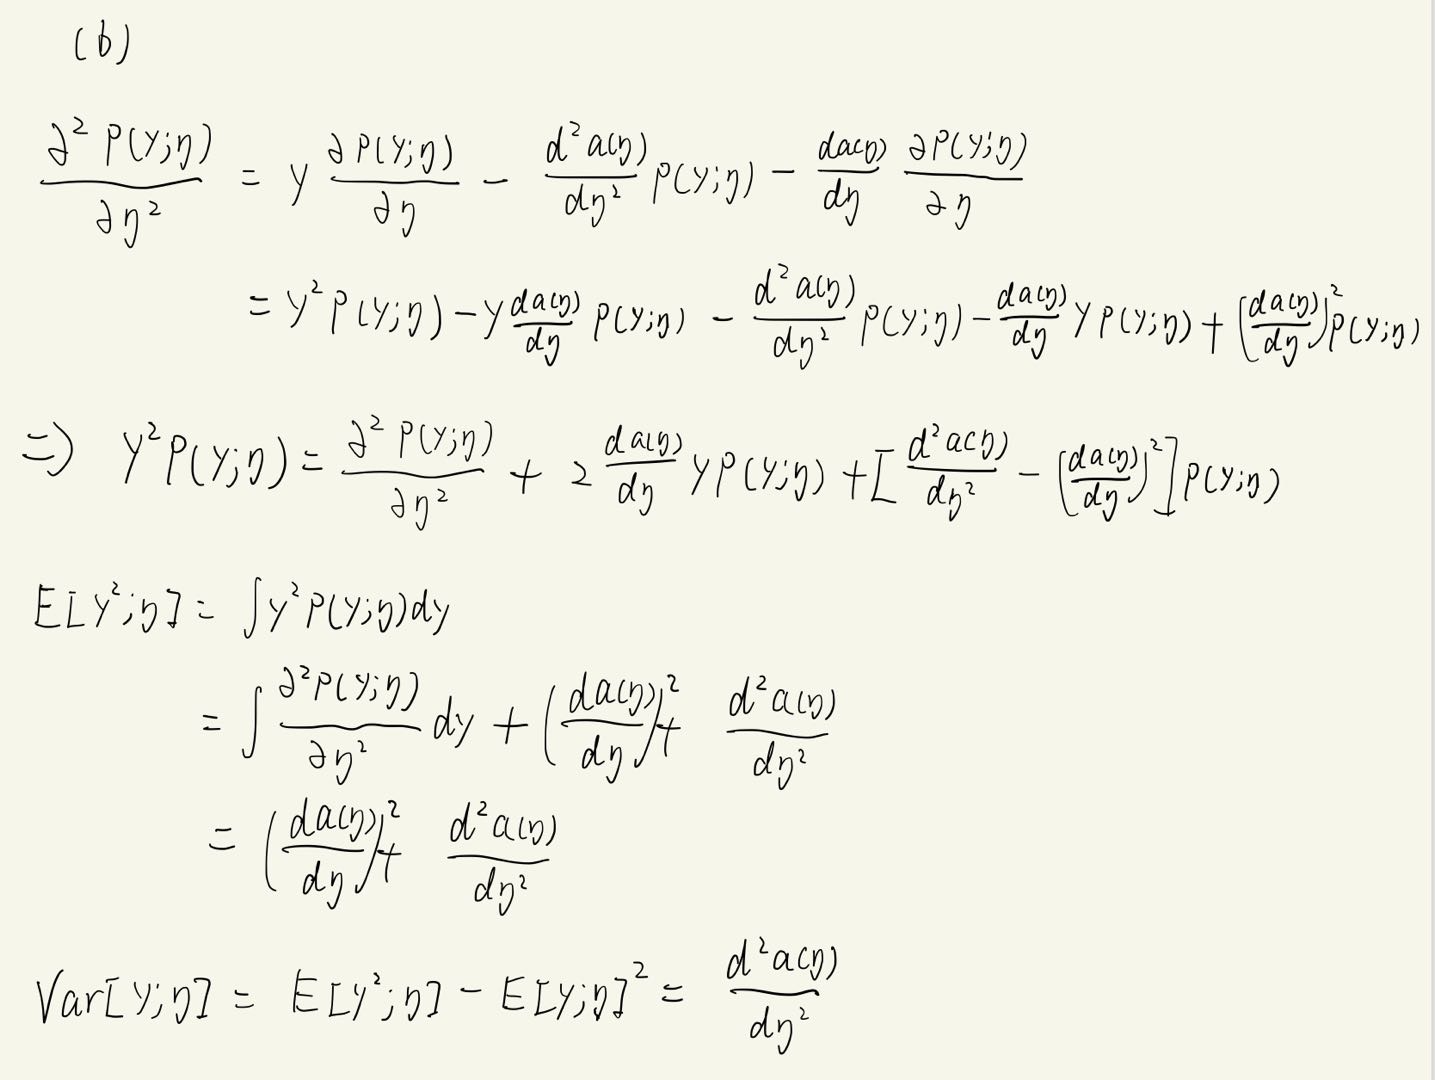 (b)
∂²P(y;η)/∂η² = y ∂P(y;η)/∂η − d²a(η)/dη² P(y;η) − da(η)/dη ∂P(y;η)/∂η
= y²P(y;η) − y da(η)/dη P(y;η) − d²a(η)/dη² P(y;η) − da(η)/dη y P(y;η) + (da(η)/dη)² P(y;η)
⇒ y²P(y;η) = ∂²P(y;η)/∂η² + 2 da(η)/dη y P(y;η) + [d²a(η)/dη² − (da(η)/dη)²] P(y;η)
E[y²;η] = ∫y²P(y;η)dy
= ∫ ∂²P(y;η)/∂η² dy + (da(η)/dη)² + d²a(η)/dη²
= (da(η)/dη)² + d²a(η)/dη²
Var[y;η] = E[y²;η] − E[y;η]² = d²a(η)/dη²